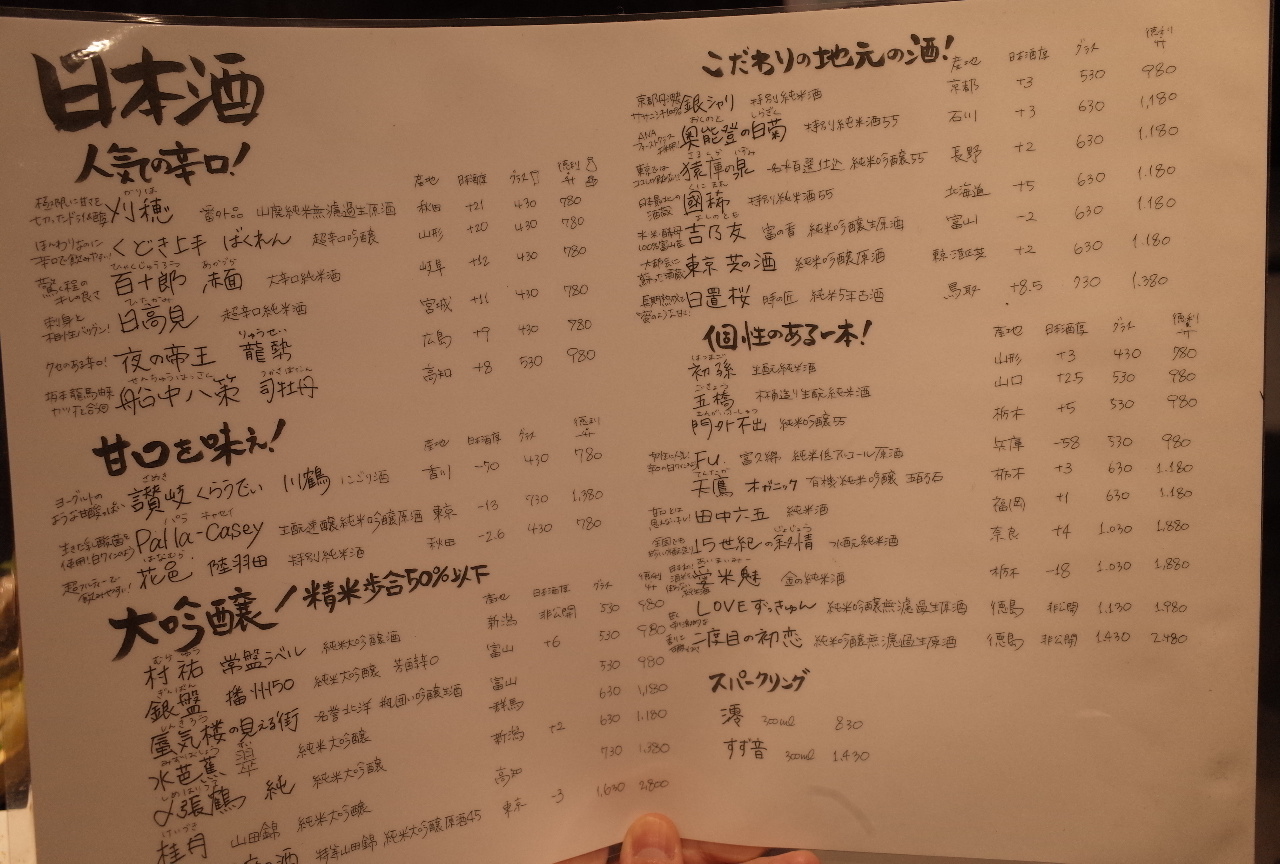 日本酒
人気の辛口!
産地 日本酒度 グラス 徳利
かりほ
刈穂 番外品 山廃純米無濾過生原酒 秋田 +21 430 780
くどき上手 ばくれん 超辛口吟醸 山形 +20 430 780
ひゃくじゅうろう あかづら
百十郎 赤面 大辛口純米酒 岐阜 +12 430 780
ひたかみ
日高見 超辛口純米酒 宮城 +11 430 780
クセのある辛口!
りゅうせい
夜の帝王 龍勢 広島 +9 430 780
坂本龍馬由来
せんちゅうはっさく つかさぼたん
船中八策 司牡丹 高知 +8 530 980
甘口を味え!
産地 日本酒度 グラス 徳利
ヨーグルトの
ような甘酸っぱい
さぬき
讃岐くらうでぃ 川鶴 にごり酒 香川 -70 430 780
パラ キャセイ
Palla-Casey 生酛造酸純米吟醸原酒 東京 -13 730 1,380
はなむら
花邑 陸羽田 特別純米酒 秋田 -2.6 430 780
大吟醸! 精米歩合50%以下
産地 日本酒度 グラス
むらゆう
村祐 常盤ラベル 純米大吟醸酒 新潟 非公開 530 980
ぎんばん
銀盤 播州50 純米大吟醸 富山 +6 530 980
しんきろう
蜃気楼の見える街 名誉北洋 瓶囲い吟醸生酒 富山 530 980
みずばしょう
水芭蕉 翠 純米大吟醸 群馬 630 1,180
しめはりつる
〆張鶴 純 純米大吟醸 新潟 +2 630 1,180
けいげつ
桂月 山田錦 純米大吟醸 高知 730 1,380
の酒 特等山田錦 純米大吟醸原酒45 東京 -3 1,630 2,800
こだわりの地元の酒!
産地 日本酒度 グラス 徳利
銀シャリ 特別純米酒 京都 +3 530 980
おくのと しらぎく
奥能登の白菊 特別純米酒55 石川 +3 630 1,180
さるくら いずみ
猿庫の泉 名水百選仕込 純米吟醸55 長野 +2 630 1.180
くにまれ
國稀 特別純米酒55 北海道 +5 630 1.180
よしのとも
吉乃友 富の香 純米吟醸生原酒 富山 -2 630 1.180
東京 芝の酒 純米吟醸原酒 東京港区芝 +2 630 1.180
日置桜 時の匠 純米5年古酒 鳥取 +8.5 730 1.380
個性のある一本!
産地 日本酒度 グラス 徳利
はつまご
初孫 生酛純米酒 山形 +3 430 780
ごきょう
五橋 木桶造り生酛純米酒 山口 +2.5 530 980
もんがいふしゅつ
門外不出 純米吟醸55 栃木 +5 530 980
Fu. 富久錦 純米低アルコール原酒 兵庫 -58 530 980
てんたか
天鷹 オーガニック 有機純米吟醸 五百万石 栃木 +3 630 1.180
田中六五 純米酒 福岡 +1 630 1.180
15世紀の 水酛純米酒 奈良 +4 1.030 1.880
米魅 金の純米酒 栃木 -18 1.030 1,880
LOVEずっきゅん 純米吟醸無濾過生原酒 徳島 非公開 1.130 1.980
二度目の初恋 純米吟醸無濾過生原酒 徳島 非公開 1430 2.480
スパークリング
澪 300ml 830
すず音 300ml 1.430